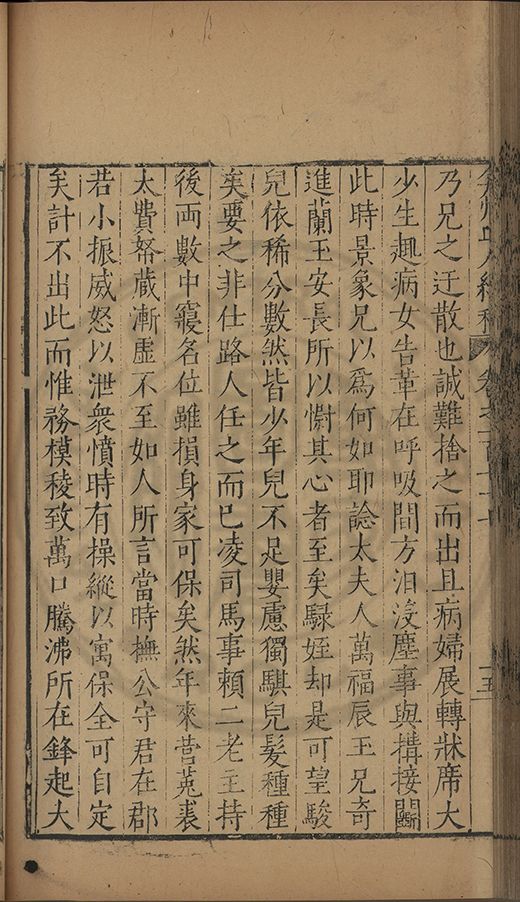 乃兄之迂散也誠難捨之而出且病婦展轉牀席大
少生趣病女告革在呼吸間方汨沒塵事與搆接鬭
此時景象兄以爲何如耶諗太夫人萬福辰玉兄奇
進蘭玉安長所以慰其心者至矣騄姪却是可望駿
兒依稀分數然皆少年兒不足嬰慮獨騏兒髮種種
矣要之非仕路人任之而已凌司馬事賴二老主持
後両數中寢名位雖損身家可保矣然年來營菟裘
太費帑蔵漸虛不至如人所言當時撫公守君在郡
若小振威怒以泄衆憤時有操縱以寓保全可自定
矣計不出此而惟務模稜致萬口騰沸所在鋒起大